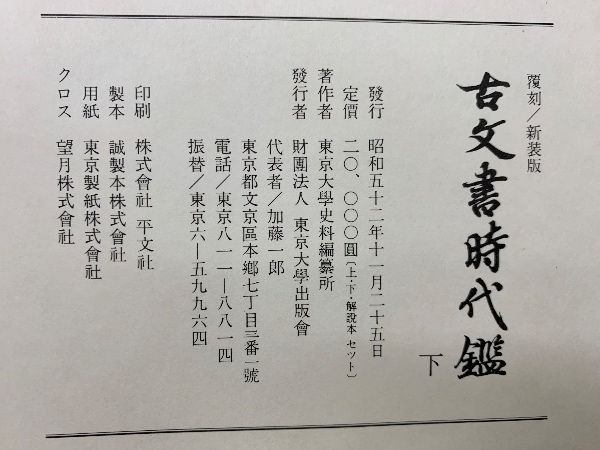 覆刻/新装版
古文書時代鑑
下
發行 昭和五十二年十一月二十五日
定價 二〇、〇〇〇圓〔上・下・解説本 セット〕
著作者 東京大學史料編纂所
發行者 財團法人 東京大學出版會
代表者/加藤一郎
東京都文京區本鄕七丁目三番一號
電話/東京八一一―八八一四
振替/東京六―五九九六四
印刷 株式會社 平文社
製本 誠製本株式會社
用紙 東京製紙株式會社
クロス 望月株式會社